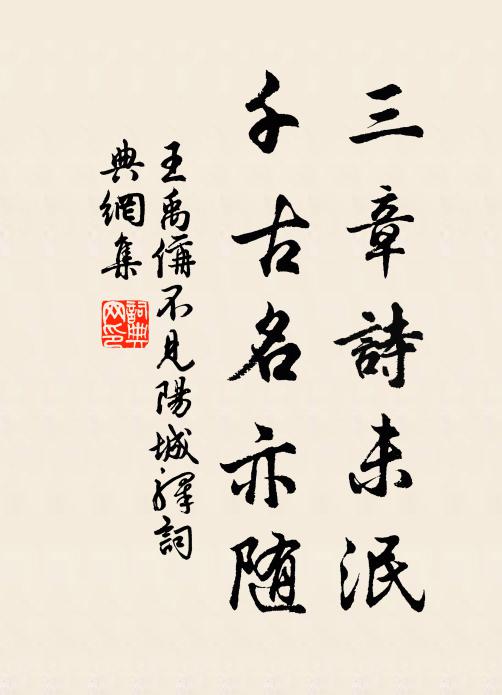 三章詩未泯
千古名亦随
王禹偁不見陽城驛詞
典網集
詞典網印